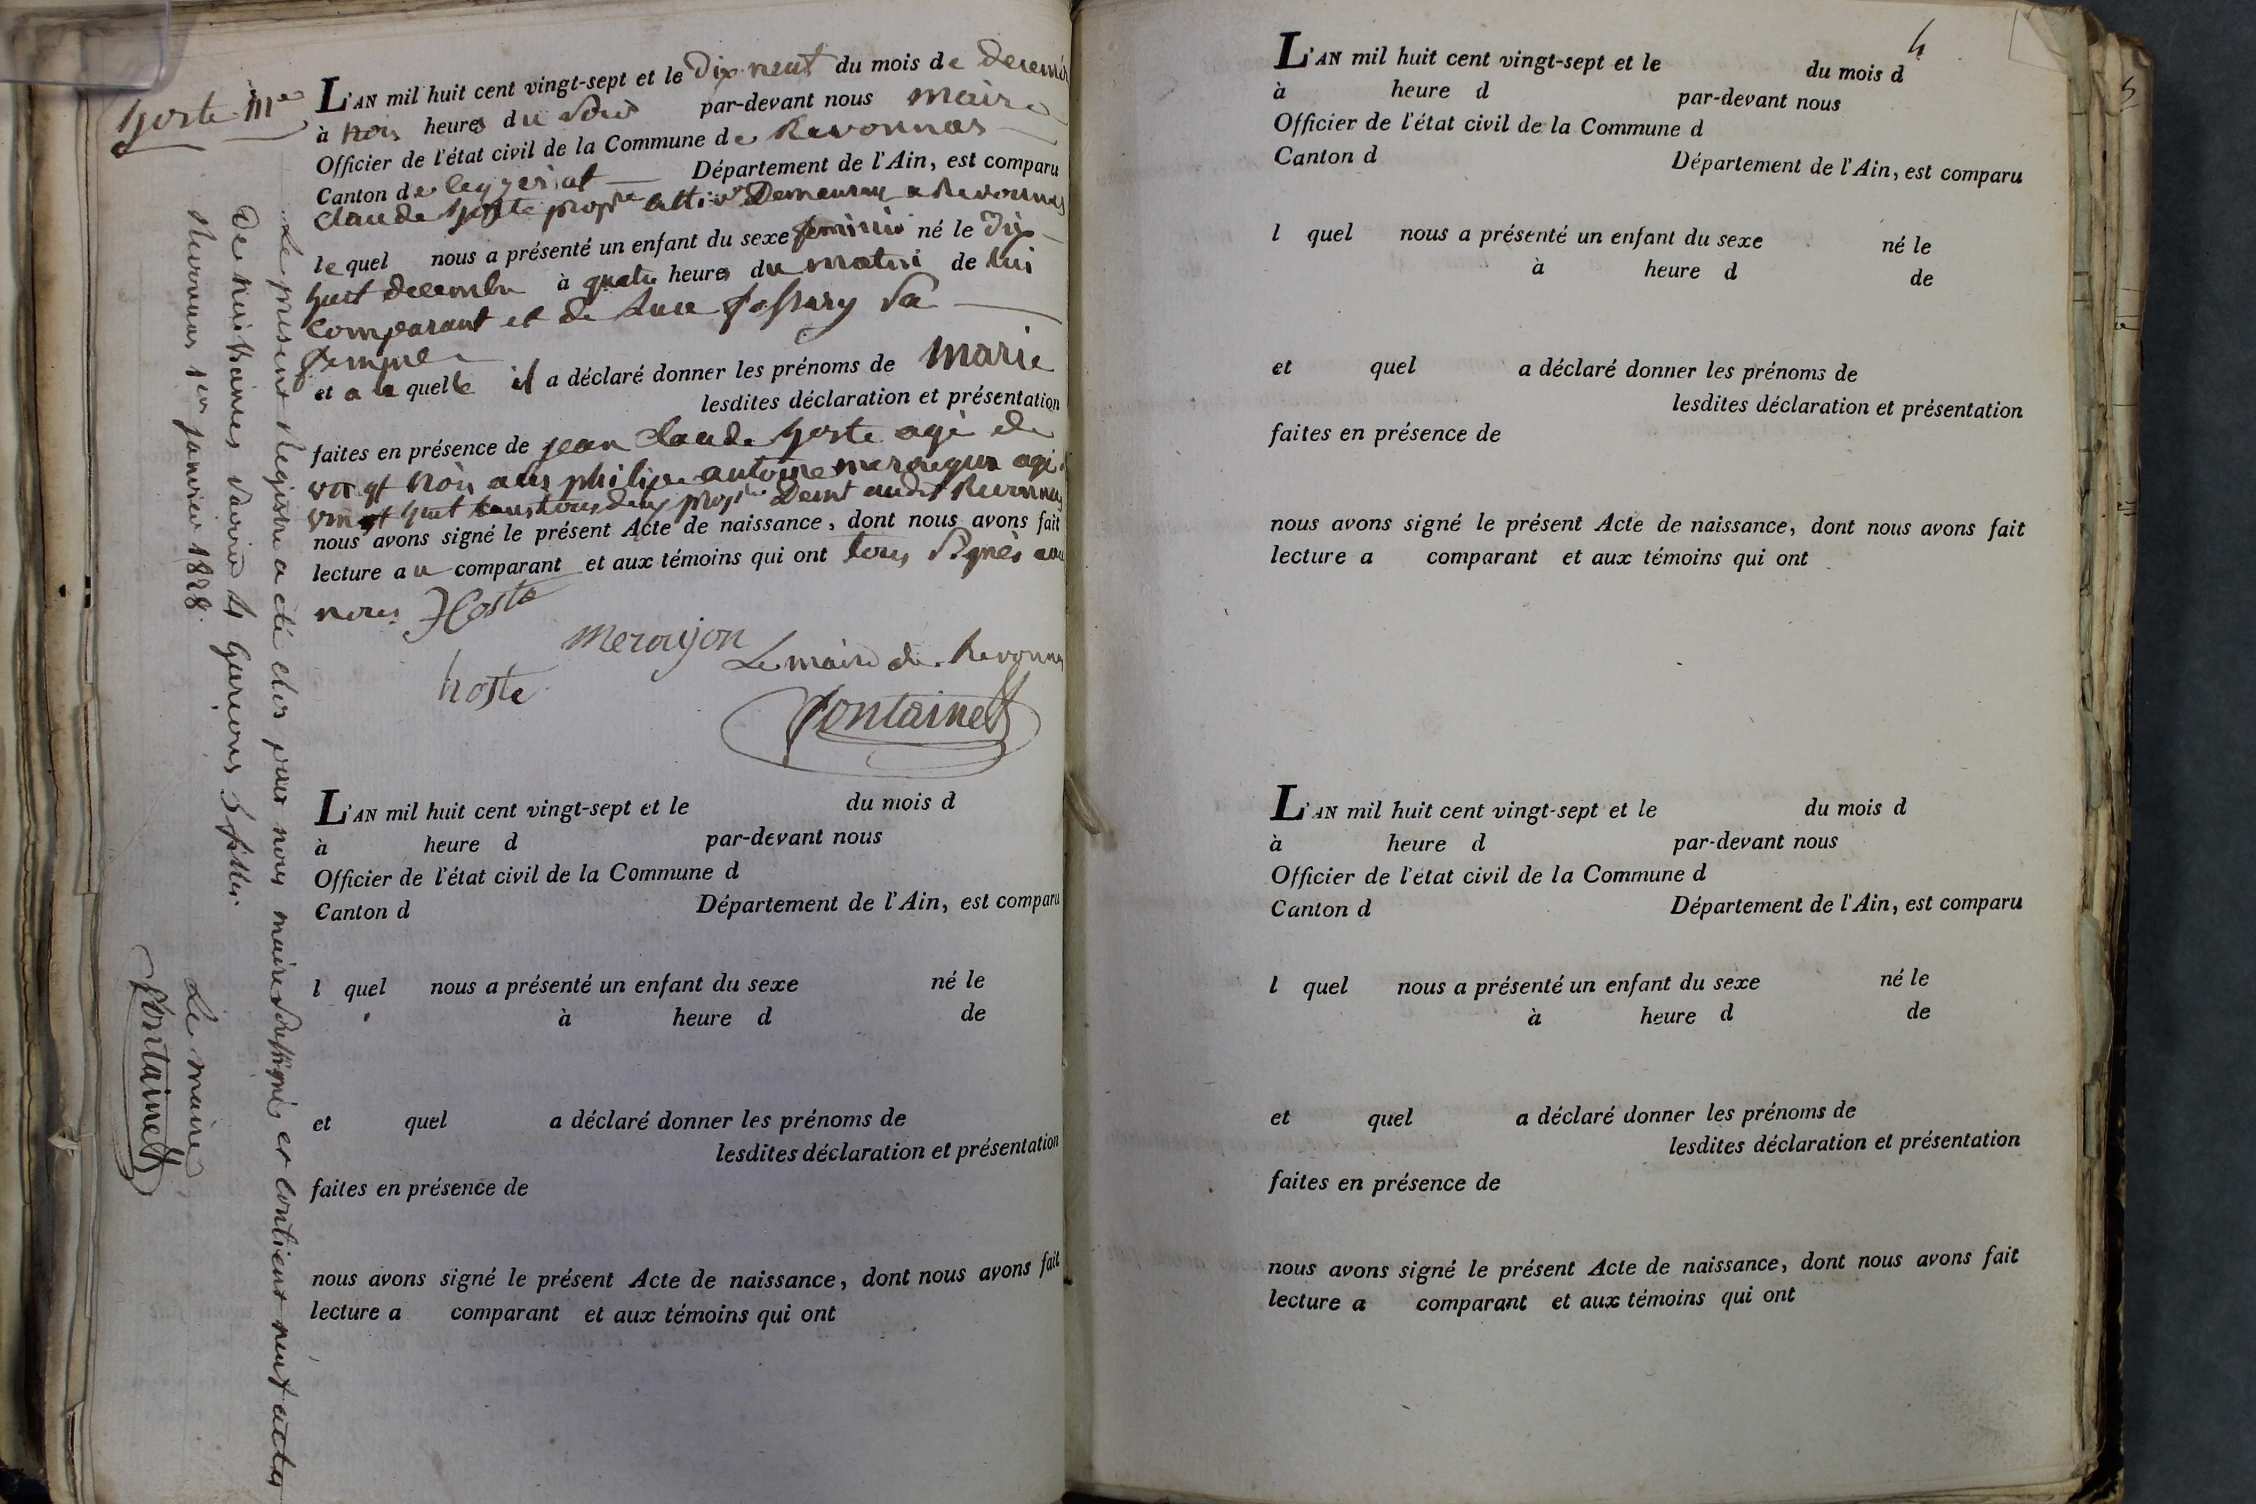 hoste M.e
L'AN mil huit cent vingt-sept et le Dix neuf du mois de decemb
à trois heures du soir par-devant nous maire
Officier de l'état civil de la Commune de Revonnas
Canton de Ceyzeriat Département de l'Ain, est comparu
Claude hoste prop.re Demeurant a Revonnas
lequel nous a présenté un enfant du sexe feminin né le dix
huit decembre à quatre heures du matin de lui
comparant et de sa
femme
et a la quelle il a déclaré donner les prénoms de Marie
lesdites déclaration et présentation
faites en présence de jean Claude hoste agé de
vingt trois ans philipe antoine agé
vingt huit tous deux prop.re Demt audit Revonnas
nous avons signé le présent Acte de naissance, dont nous avons fait
lecture au comparant et aux témoins qui ont tous signés avec
nous Hoste
meroujon
Le maire de Revonnas
hoste
Fontaine
Le présent Registre a été clos par nous maire soussigné et contient neuf actes
de naissances savoir 4 garçons 5 filles.
Revonnas 1er janvier 1828.
Le maire
Fontaine
L'AN mil huit cent vingt-sept et le du mois d
à heure d par-devant nous
Officier de l'état civil de la Commune d
Canton d Département de l'Ain, est comparu
l quel nous a présenté un enfant du sexe né le
à heure d de
et quel a déclaré donner les prénoms de
lesdites déclaration et présentation
faites en présence de
nous avons signé le présent Acte de naissance, dont nous avons fait
lecture a comparant et aux témoins qui ont
4
L'AN mil huit cent vingt-sept et le du mois d
à heure d par-devant nous
Officier de l'état civil de la Commune d
Canton d Département de l'Ain, est comparu
l quel nous a présenté un enfant du sexe né le
à heure d de
et quel a déclaré donner les prénoms de
lesdites déclaration et présentation
faites en présence de
nous avons signé le présent Acte de naissance, dont nous avons fait
lecture a comparant et aux témoins qui ont
L'AN mil huit cent vingt-sept et le du mois d
à heure d par-devant nous
Officier de l'état civil de la Commune d
Canton d Département de l'Ain, est comparu
l quel nous a présenté un enfant du sexe né le
à heure d de
et quel a déclaré donner les prénoms de
lesdites déclaration et présentation
faites en présence de
nous avons signé le présent Acte de naissance, dont nous avons fait
lecture a comparant et aux témoins qui ont
5